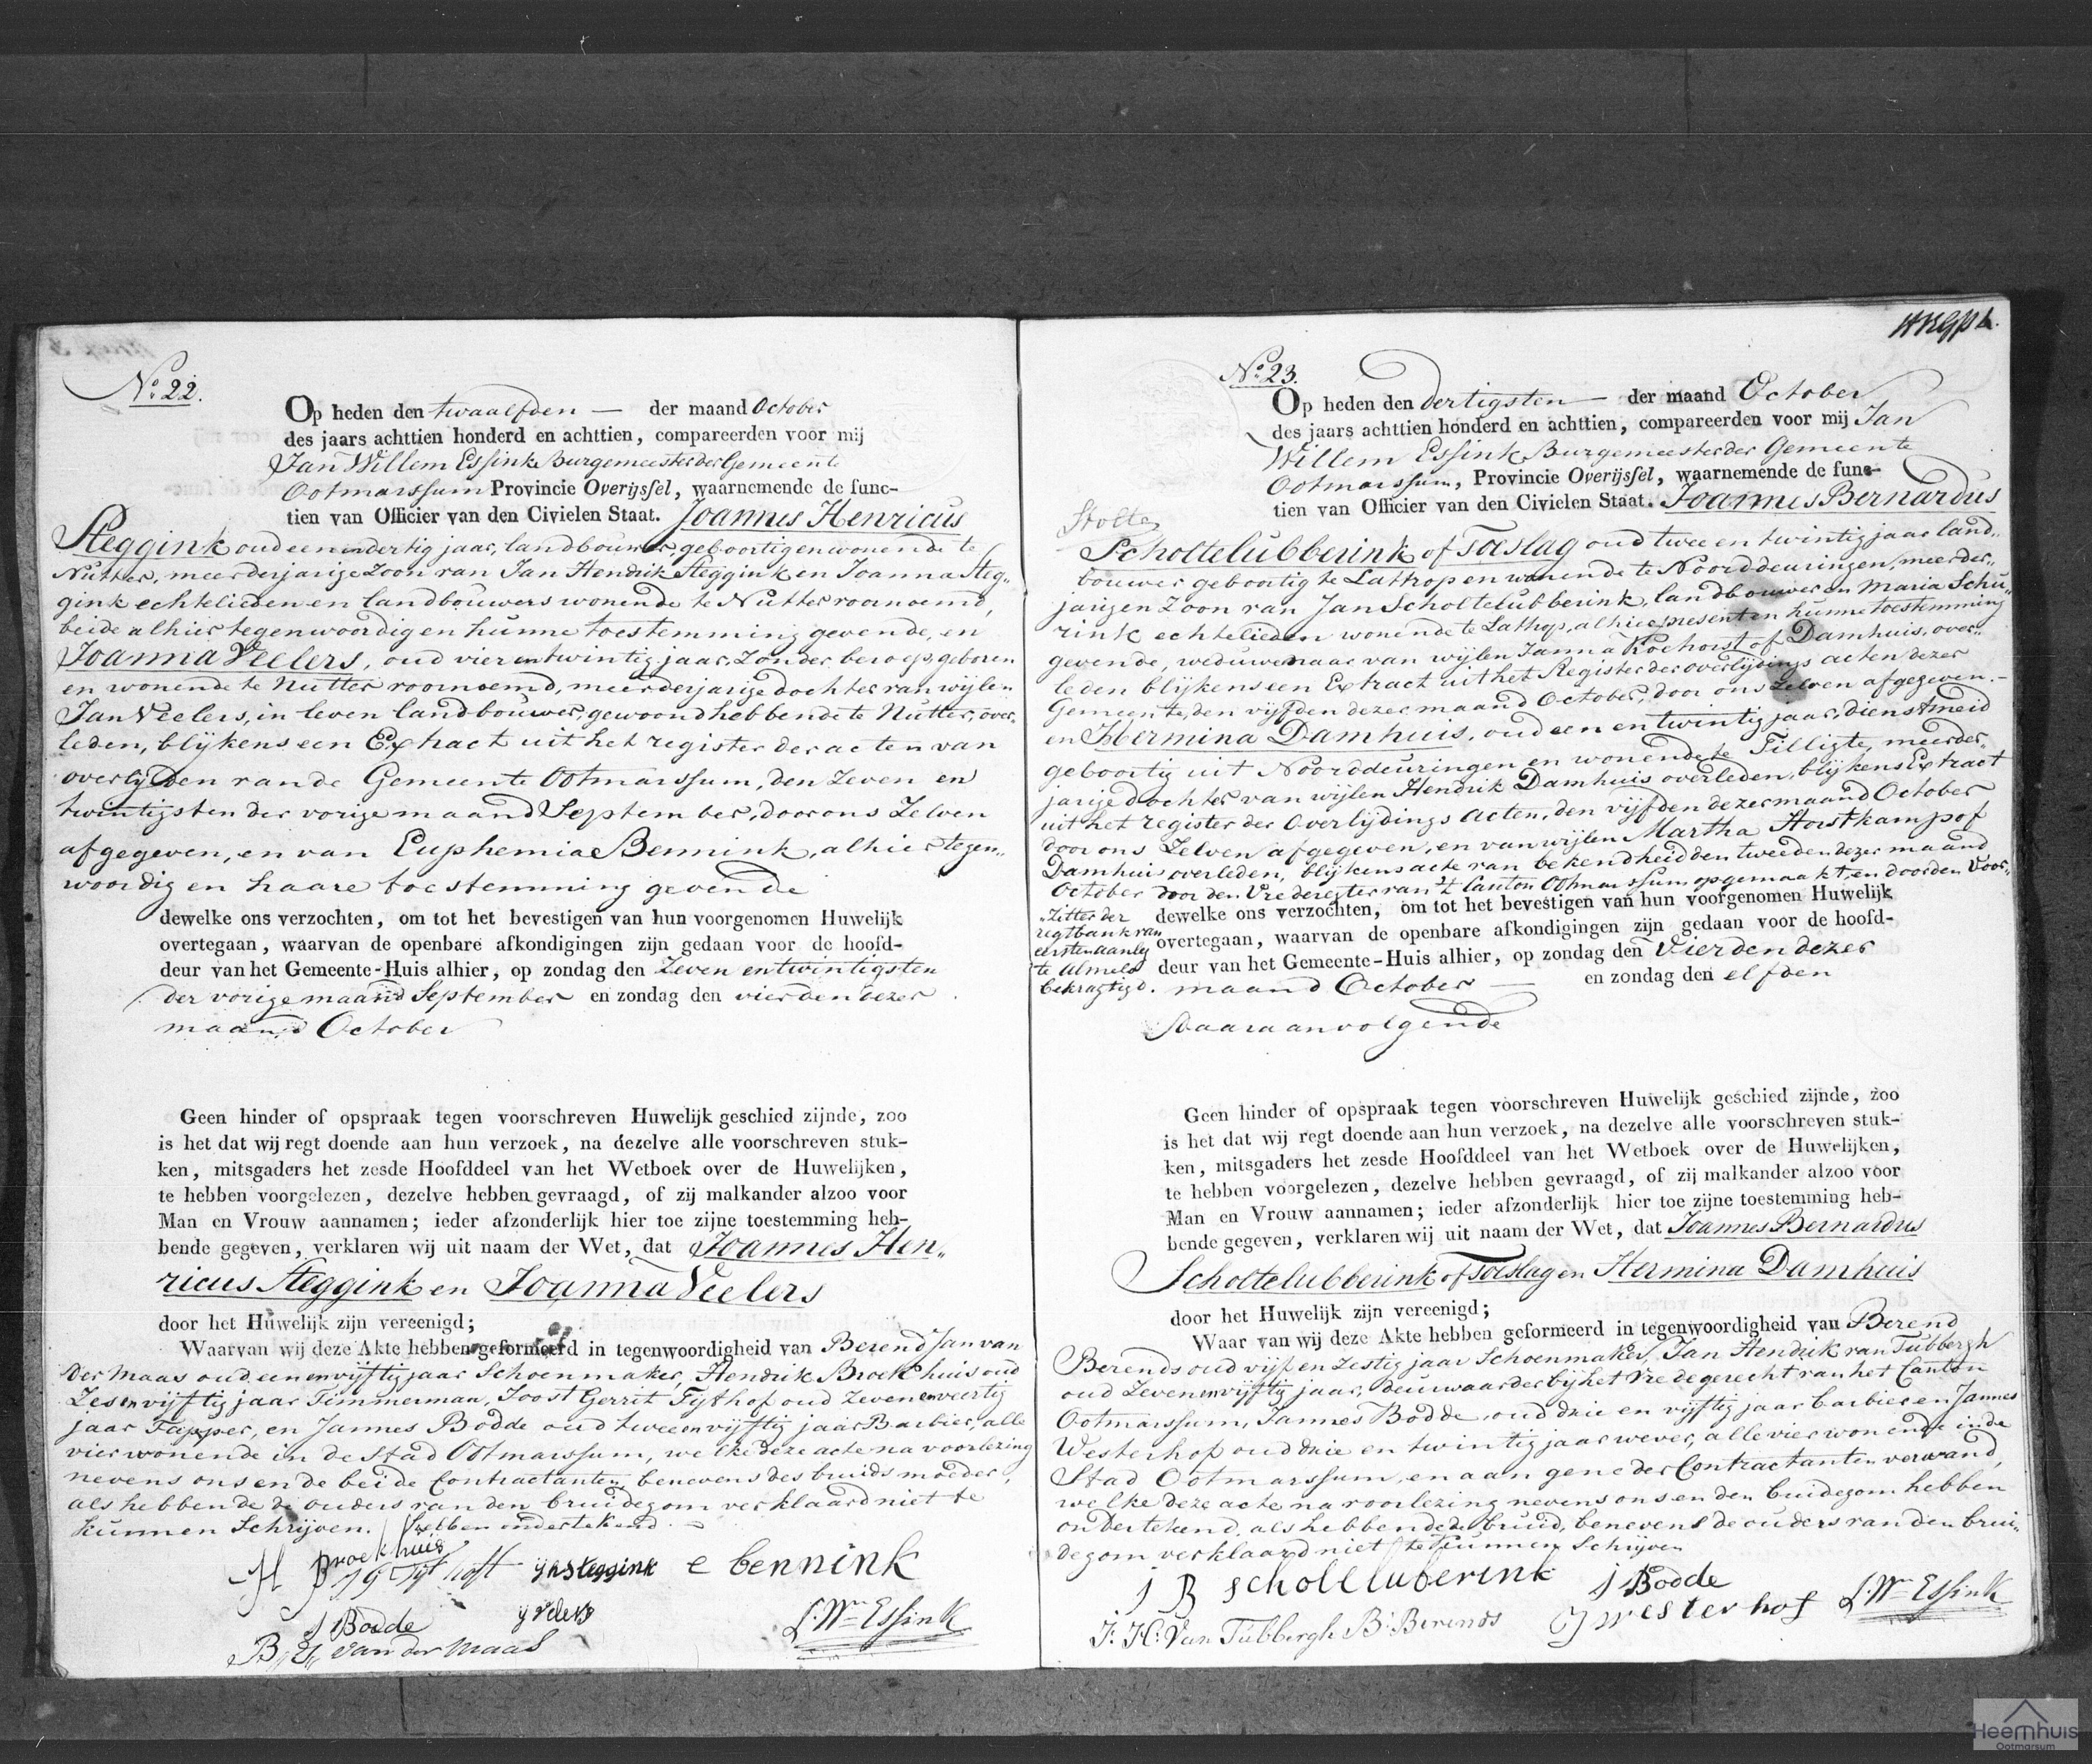 No. 22.
Op heden den twaalfden — der maand October
des jaars achttien honderd en achttien, compareerden voor mij
Jan Willem Essink Burgemeester der Gemeente
Ootmarssum Provincie Overijssel, waarnemende de func-
tien van Officier van den Civielen Staat. Joannes Henricus
Steggink oud een en dertig jaar, landbouwer geboortig en wonende te
Nutter, meerderjarige Zoon van Jan Hendrik Steggink en Joanna Steg„
gink echtelieden en landbouwers wonende te Nutter voornoemd,
beide alhier tegenwoordig en hunne toestemming gevende, en
Joanna Veelers, oud vier en twintig jaar, Zonder beroep, geboren
en wonende te Nutter voornoemd, meerderjarige dochter van wijlen
Jan Veelers, in leven landbouwer, gewoond hebbende te Nutter, over„
leden, blijkens een Extract uit het register der acten van
overlijden van de Gemeente Ootmarssum, den Zeven en
twintigsten der vorige maand September, door ons Zelven
afgegeven, en van Euphemia Bennink, alhier tegen„
woordig en haare toestemming gevende
dewelke ons verzochten, om tot het bevestigen van hun voorgenomen Huwelijk
overtegaan, waarvan de openbare afkondigingen zijn gedaan voor de hoofd-
deur van het Gemeente-Huis alhier, op zondag den Zeven en twintigsten
der vorige maand September en zondag den vierden dezer
maand October
Geen hinder of opspraak tegen voorschreven Huwelijk geschied zijnde, zoo
is het dat wij regt doende aan hun verzoek, na dezelve alle voorschreven stuk-
ken, mitsgaders het zesde Hoofddeel van het Wetboek over de Huwelijken,
te hebben voorgelezen, dezelve hebben gevraagd, of zij malkander alzoo voor
Man en Vrouw aannamen; ieder afzonderlijk hier toe zijne toestemming heb-
bende gegeven, verklaren wij uit naam der Wet, dat Joannes Hen„
ricus Steggink en Joanna Veelers
door het Huwelijk zijn vereenigd;
Waarvan wij deze Akte hebben geformeerd in tegenwoordigheid van Berend Jan van
der Maas oud een en vijftig jaar Schoenmaker, Hendrik Broekhuis oud
Zes en vijftig jaar Timmerman, Joost Gerrit Fijthof oud Zeven en veertig
jaar Tapper, en Jannes Bodde oud twee en vijftig jaar Barbier, alle
vier wonende in de Stad Ootmarssum, welke deze acte na voorlezing
nevens ons en de beide Contractanten, benevens des bruids moeder,
als hebbende de ouders van den bruidegom verklaard niet te
kunnen Schrijven. hebben ondertekend. —
H Broekhuis
JG Fijthoff JH Steggink e bennink
J Bodde J Velers J. Wm Essink
B,, J,, van der Maas
No. 23.
Op heden den dertigsten — der maand October
des jaars achttien honderd en achttien, compareerden voor mij Jan
Willem Essink Burgemeester der Gemeente
Ootmarssum, Provincie Overijssel, waarnemende de func-
tien van Officier van den Civielen Staat. Joannes Bernardus
Stolte
Scholtelubberink of Toeslag oud twee en twintig jaar land„
bouwer geboortig te Lattrop en wonende te Noorddeuringen, meerder„
jarigen Zoon van Jan Scholtelubberink, landbouwer en Maria Schu„
rink echtelieden wonende te Lattrop, alhier present en hunne toestemming
gevende, weduwenaar van wijlen Janna Roehorst of Damhuis, over„
leden blijkens een Extract uit het Register der overlijdings acten dezer
Gemeente, den vijfden dezer maand October, door ons Zelven afgegeven. –
en Hermina Damhuis, oud een en twintig jaar, dienstmeid
geboortig uit Noorddeuringen en wonende te Tilligte, meerder„
jarige dochter van wijlen Hendrik Damhuis overleden, blijkens Extract
uit het register der Overlijdings Acten, den vijfden dezer maand October
door ons Zelven afgegeven, en van wijlen Martha Horstkamp of
Damhuis overleden, blijkens acte van bekendheid den tweeden dezer maand
October door den Vrederegter van 't Canton Ootmarssum opgemaakt, en door den Voor„
„Zitter der
regtbank van
eersten aanleg
te Almelo
bekragtigd.
dewelke ons verzochten, om tot het bevestigen van hun voorgenomen Huwelijk
overtegaan, waarvan de openbare afkondigingen zijn gedaan voor de hoofd-
deur van het Gemeente-Huis alhier, op zondag den Vierden dezer
maand October — en zondag den elfden
daaraanvolgende
Geen hinder of opspraak tegen voorschreven Huwelijk geschied zijnde, zoo
is het dat wij regt doende aan hun verzoek, na dezelve alle voorschreven stuk-
ken, mitsgaders het zesde Hoofddeel van het Wetboek over de Huwelijken,
te hebben voorgelezen, dezelve hebben gevraagd, of zij malkander alzoo voor
Man en Vrouw aannamen; ieder afzonderlijk hier toe zijne toestemming heb-
bende gegeven, verklaren wij uit naam der Wet, dat Joannes Bernardus
Scholtelubberink of Toeslag en Hermina Damhuis
door het Huwelijk zijn vereenigd;
Waar van wij deze Akte hebben geformeerd in tegenwoordigheid van Berend
Berends oud vijf en Zestig jaar Schoenmaker, Jan Hendrik van Tubbergh
oud Zeven en vijftig jaar, deurwaarder bij het Vredegerecht van het Canton
Ootmarssum, Jannes Bodde, oud drie en vijftig jaar barbier en Jannes
Westerhof oud drie en twintig jaar wever, alle vier wonende in de
Stad Ootmarssum, en aan gene der Contractanten verwand,
welke deze acte na voorlezing nevens ons en den bruidegom hebben
ondertekend, als hebbende de bruid, benevens de ouders van den brui„
degom verklaard niet te kunnen Schrijven
J B Scholtluberink J Bodde
J: H: Van Tubbergh B: Berends J Westerhof J. Wm Essink
Heemhuis
Ootmarsum